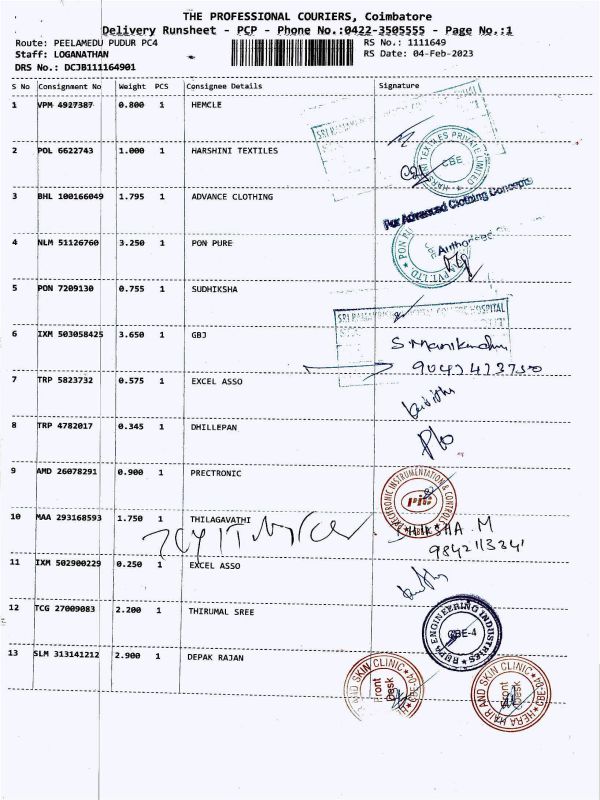 THE PROFESSIONAL COURIERS, Coimbatore
Delivery Runsheet - PCP - Phone No.:0422-3505555 - Page No.:1
Route: PEELAMEDU PUDUR PC4
RS No.: 1111649
Staff: LOGANATHAN
RS Date: 04-Feb-2023
DRS No.: DCJB111164901
S No Consignment No Weight PCS Consignee Details Signature
1 VPM 4927387 0.800 1 HEMCLE
2 POL 6622743 1.000 1 HARSHINI TEXTILES
HARSHINI TEXTILES PRIVATE LIMITED
CBE
3 BHL 100166049 1.795 1 ADVANCE CLOTHING
For Advanced Clothing Concepts
4 NLM 51126760 3.250 1 PON PURE
Authorised
PVT.LTD
5 PON 7209130 0.755 1 SUDHIKSHA
HOSPITAL
6 IXM 503058425 3.650 1 GBJ
7 TRP 5823732 0.575 1 EXCEL ASSO
8 TRP 4782017 0.345 1 DHILLEPAN
9 AMD 26078291 0.900 1 PRECTRONIC
INSTRUMENTATION & CONTROLS
10 MAA 293168593 1.750 1 THILAGAVATHI
11 IXM 502900229 0.250 1 EXCEL ASSO
12 TCG 27009083 2.200 1 THIRUMAL SREE
RUPA ENGINEERING INDUSTRIES
CBE-4
13 SLM 313141212 2.900 1 DEPAK RAJAN
AND SKIN CLINIC
Front Desk
HERA HAIR AND SKIN CLINIC
CBE-04
Front Desk